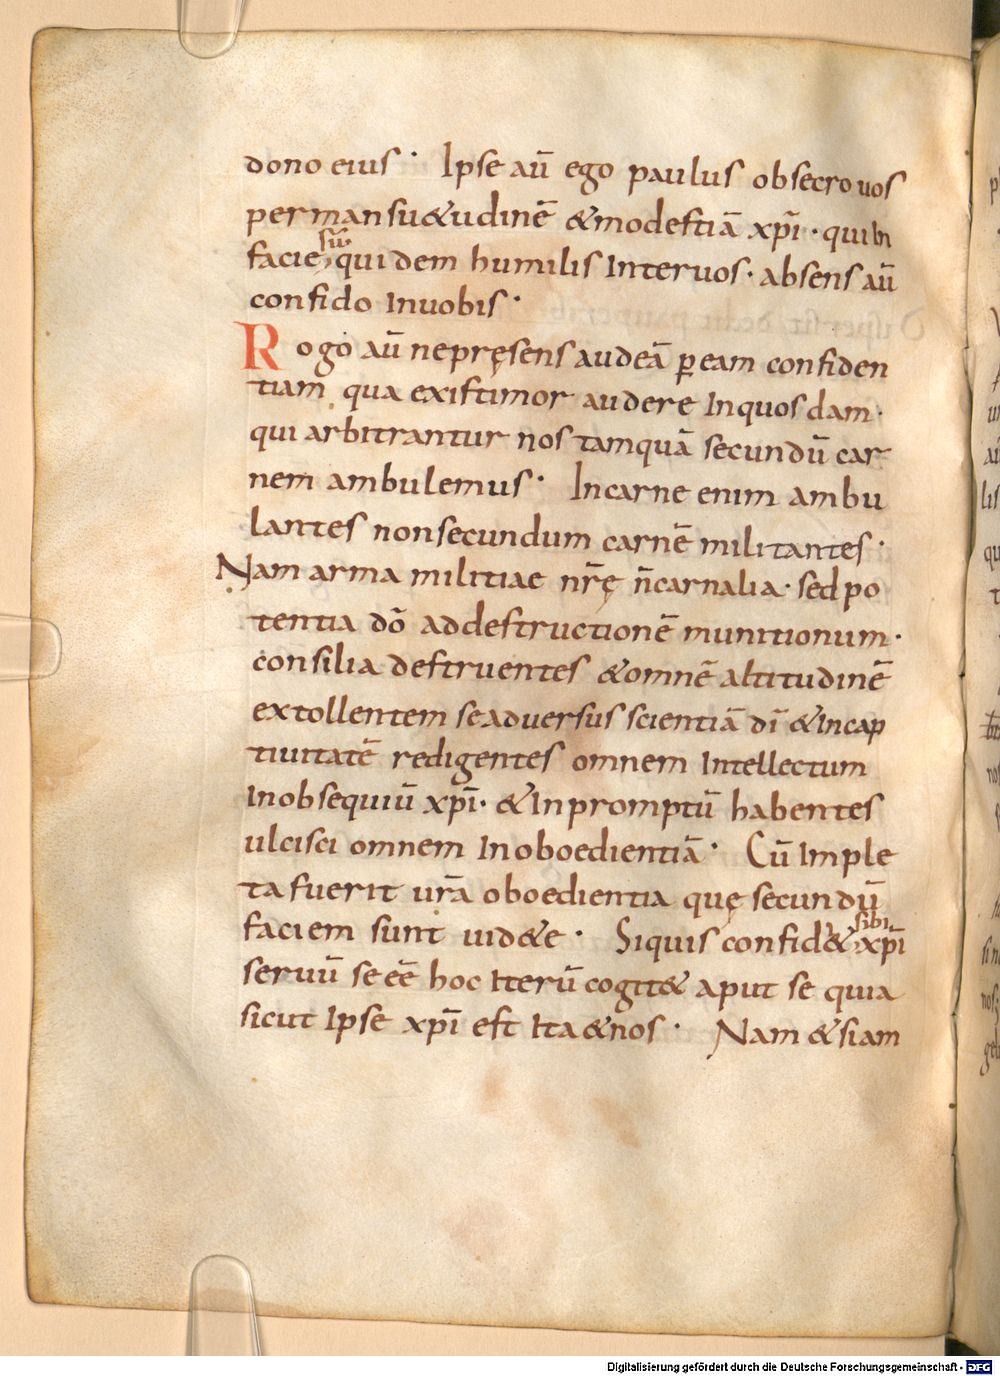 dono eius · Ipse aū ego paulus obsecro uos
permansu&udinē &modestiā xp̄i · qui in
facie sū quidem humilis Interuos · absens aū
confido Inuobis ·
Rogo aū nepręsens audeā ꝑeam confiden
tiam qua existimor audere Inquosdam ·
qui arbitrantur nos tamquā secundū car
nem ambulemus · Incarne enim ambu
lantes nonsecundum carnē militantes ·
Nam arma militiae nr̄ę n̄carnalia · sed po
tentia dō addestructionē munitionum ·
consilia destruentes &omnē altitudinē
extollentem seaduersus scientiā dī &Incap
tiuitatē redigentes omnem Intellectum
Inobsequiū xp̄i · &Inpromptū habentes
ulcisci omnem Inoboedientiā · Cū Imple
ta fuerit ur̄a oboedientia quę secundū
faciem sunt uid&e · Siquis confid& sibi xp̄i
seruū se eē hoc Iterū cogit& aput se quia
sicut Ipse xp̄i est Ita &nos · Nam &siam
Digitalisierung gefördert durch die Deutsche Forschungsgemeinschaft - DFG